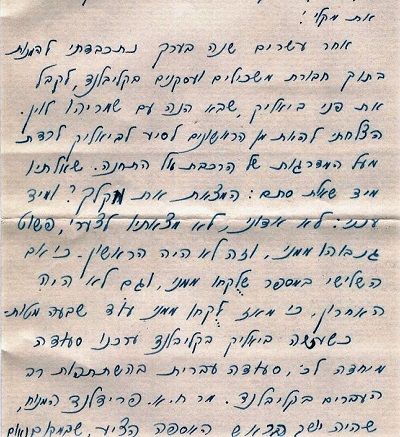 את מקלי !
אחר עשרים שנה בערך נתכבדתי להמנות
בתוך חבורת משכילים ועסקנים בקליבלנד, לקבל
את פני ביאליק, שבא הנה עם שמריהו לוין.
הצלחתי להיות מן הראשונים לסייע לביאליק לרדת
מעל המדרגות של הרכבת אל התחנה. שאלתיו
מיד שאלת סתם: המצאת את מקלך? ומיד
ענני: לא אדוני, לא מצאתיו לצערי, פשוט
גנבוהו ממני, וזה לא היה הראשון. כי אם
השלישי במספר שלקחו ממני, וגם לא היה
האחרון, כי מאז לקחו ממני עוד שבעה מטות.
כשעשה ביאליק בקליבלנד ערכנו סעודה
מיוחדה לכ', סעודה עברית בהשתתפות רב
העברים בקליבלנד. מר ח.א. פרידלנד המנוח,
שהיה יושב בראש האספה הציע, שבמקום